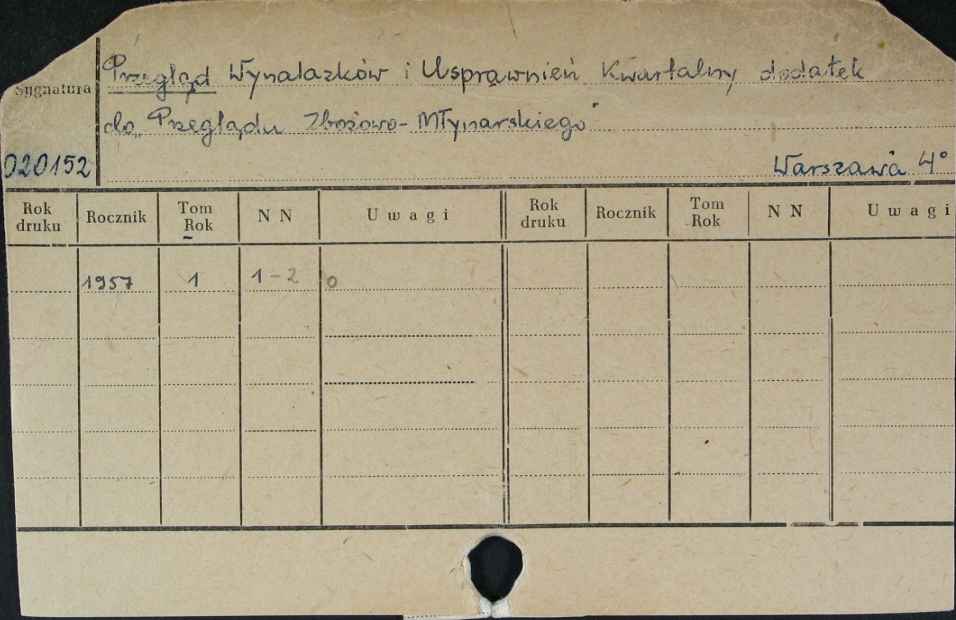 Przegląd Wynalazków i Usprawnień Kwartalny dodatek
Sygnatura
do „Przeglądu Zbożowo-Młynarskiego"
020152
Warszawa 4°
Rok druku Rocznik Tom Rok N N Uwagi Rok druku Rocznik Tom Rok N N Uwagi
1957 1 1-2 0